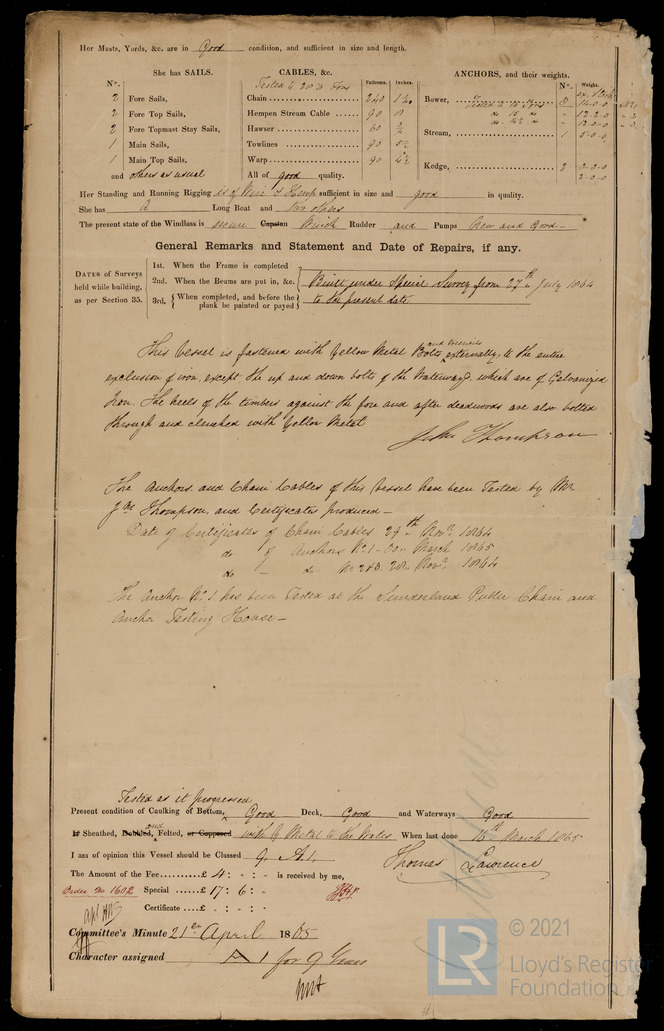 Her Masts, Yards, &c. are in Good condition, and sufficient in size and length.
She has SAILS. CABLES, &c. ANCHORS, and their weights.
Nº. Fathoms. Inches. Nº. Weight.
Tested to 20 Tons
2 Fore Sails, Chain 240 Bower,
2 Fore Top Sails, Hempen Stream Cable 90
2 Fore Topmast Stay Sails, Hawser 60 Stream, 1 5-0-0
1 Main Sails, Towlines 90
1 Main Top Sails, Warp 90 Kedge, 2 2-0-0
2-0-0
and others as usual All of good quality.
Her Standing and Running Rigging is of Wire & Hemp sufficient in size and good in quality.
She has A Long Boat and two others
The present state of the Windlass is secure Capstan Winch Rudder and Pumps New and Good
General Remarks and Statement and Date of Repairs, if any.
DATES of Surveys held while building, as per Section 35.
1st. When the Frame is completed
2nd. When the Beams are put in, &c. Built under Special Survey from 27th July 1864
3rd. When completed, and before the plank be painted or payed to the present date
This Vessel is fastened with Yellow Metal Bolts and treenails externally, to the entire
exclusion of iron, except the up and down bolts of the Waterways, which are of Galvanized
Iron. The heels of the timbers against the fore and after deadwoods are also bolted
through and clenched with Yellow Metal
John Thompson
The Anchors and Chain Cables of this Vessel have been Tested by Mr
Jno Thompson, and Certificates produced—
Date of Certificates of Chain Cables 29th Novr. 1864
do of Anchors No. 1 March 1865
do - do - No 2&3. Novr. 1864
The Anchor No. 1 has been Tested at the Sunderland Public Chain and
Anchor Testing House—
Tested as it progressed
Present condition of Caulking of Bottom, Good Deck, Good and Waterways Good
If Sheathed, Doubled, and Felted, or Coppered with Y Metal to the Wales When last done 15th March 1865
I am of opinion this Vessel should be Classed 9. A.1. Thomas Lawrence
The Amount of the Fee £ 4 : - : - is received by me,
Order No 1602 Special £ 17 : 6 : -
Certificate £ - : - : -
Committee's Minute 21st April 1865
Character assigned A 1 for 9 Years
LR
© 2021
Lloyd's Register
Foundation